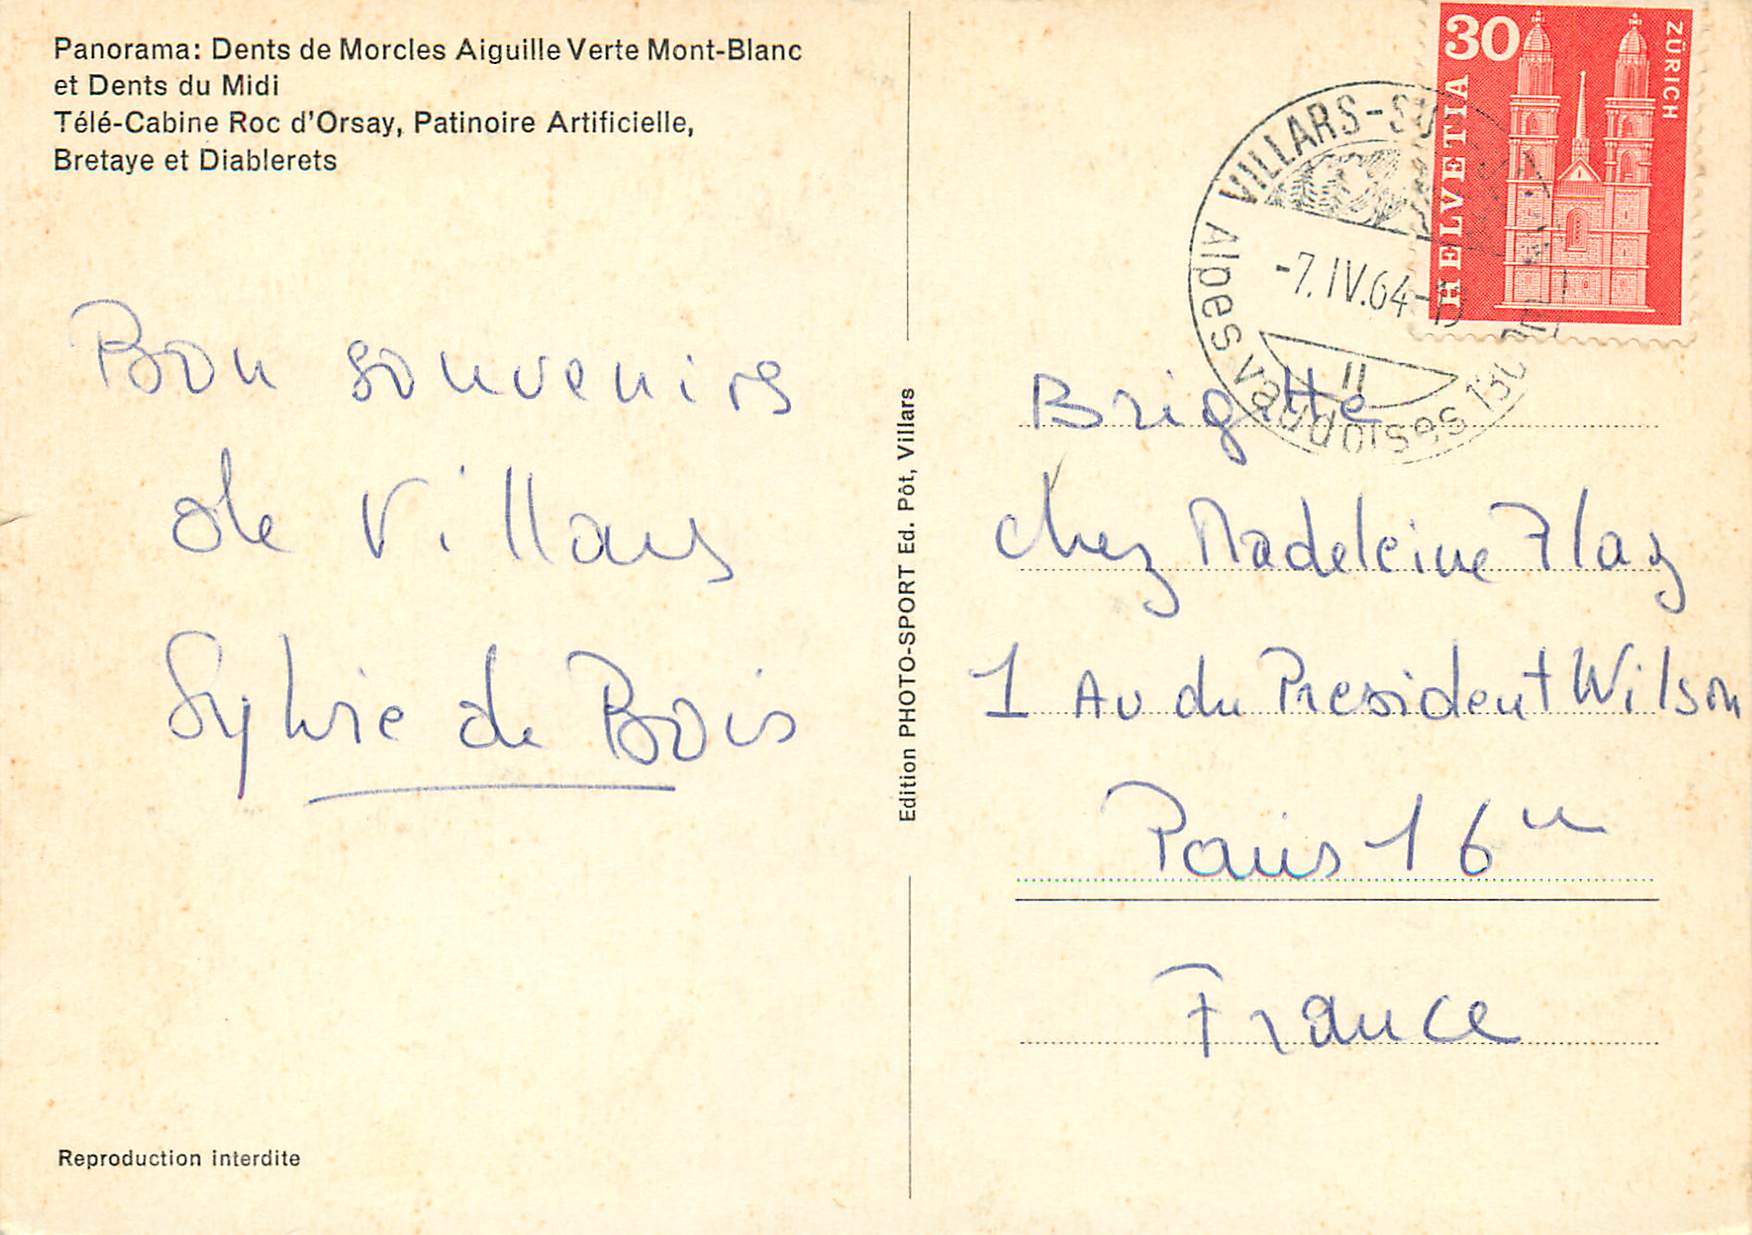 Panorama: Dents de Morcles Aiguille Verte Mont-Blanc
et Dents du Midi
Télé-Cabine Roc d'Orsay, Patinoire Artificielle,
Bretaye et Diablerets
Bon souvenirs
de Villars
Sylvie de Bois
Reproduction interdite
Edition PHOTO-SPORT Ed. Pôt, Villars
30
ZÜRICH
HELVETIA
VILLARS-SU
-7.IV.64-
Alpes vaudoises 130
Brigitte
chez Madeleine
1 Av du President Wilson
Paris 16
France